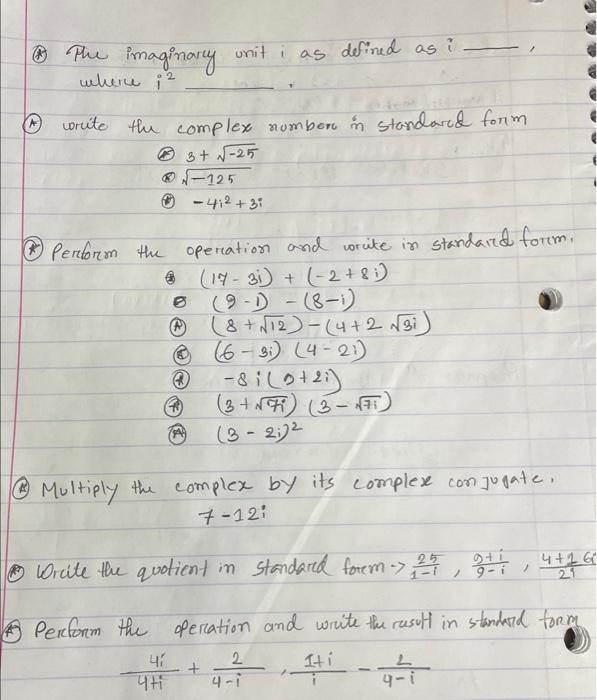 The imaginary unit i as defined as i ____,
where i² ____.
write the complex number in standard form
3 + √-25
√-125
-4i² + 3i
Perform the operation and write in standard form.
(17 - 3i) + (-2 + 8i)
(9 - i) - (8 - i)
(8 + √12) - (4 + 2 √3i)
(6 - 3i) (4 - 2i)
-8i(9 + 2i)
(3 + √7i) (3 - √7i)
(3 - 2i)²
Multiply the complex by its complex conjugate.
7 - 12i
Write the quotient in standard form -> 25/1-i , 9+i/9-i , 4+16/2i
Perform the operation and write the result in standard form
4i/4+i + 2/4-i , 1+i/i - 2/4-i